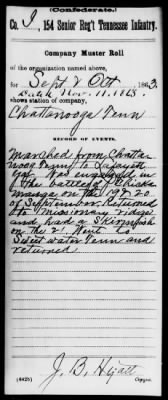 (Confederate.)
Co. I, 154 Senior Reg't Tennessee Infantry.
Company Muster Roll
of the organization named above,
for Sept & Oct, 1863.
Dated Nov. 11. 1863.
shows station of company,
Chattanooga Tenn
RECORD OF EVENTS.
Marched from Chattan
nooga Tenn to Lafayett
Ga. Was engaged in
the battle of Chicka
mauga on the 19 & 20
of September. Returned
to Missionary ridge
and had a Skirmish
on the 21. Went to
Sweet water Tenn and
returned
J. B. Hyatt
(642b)
Copyist.